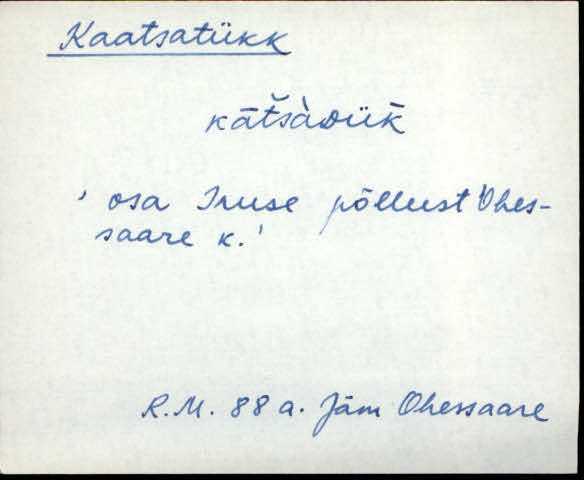 Kaatsatükk
kāt̆sàᴅük̄
' osa Iruse põllust Ohes-
saare k.'
R.M. 88 a. Jäm Ohessaare